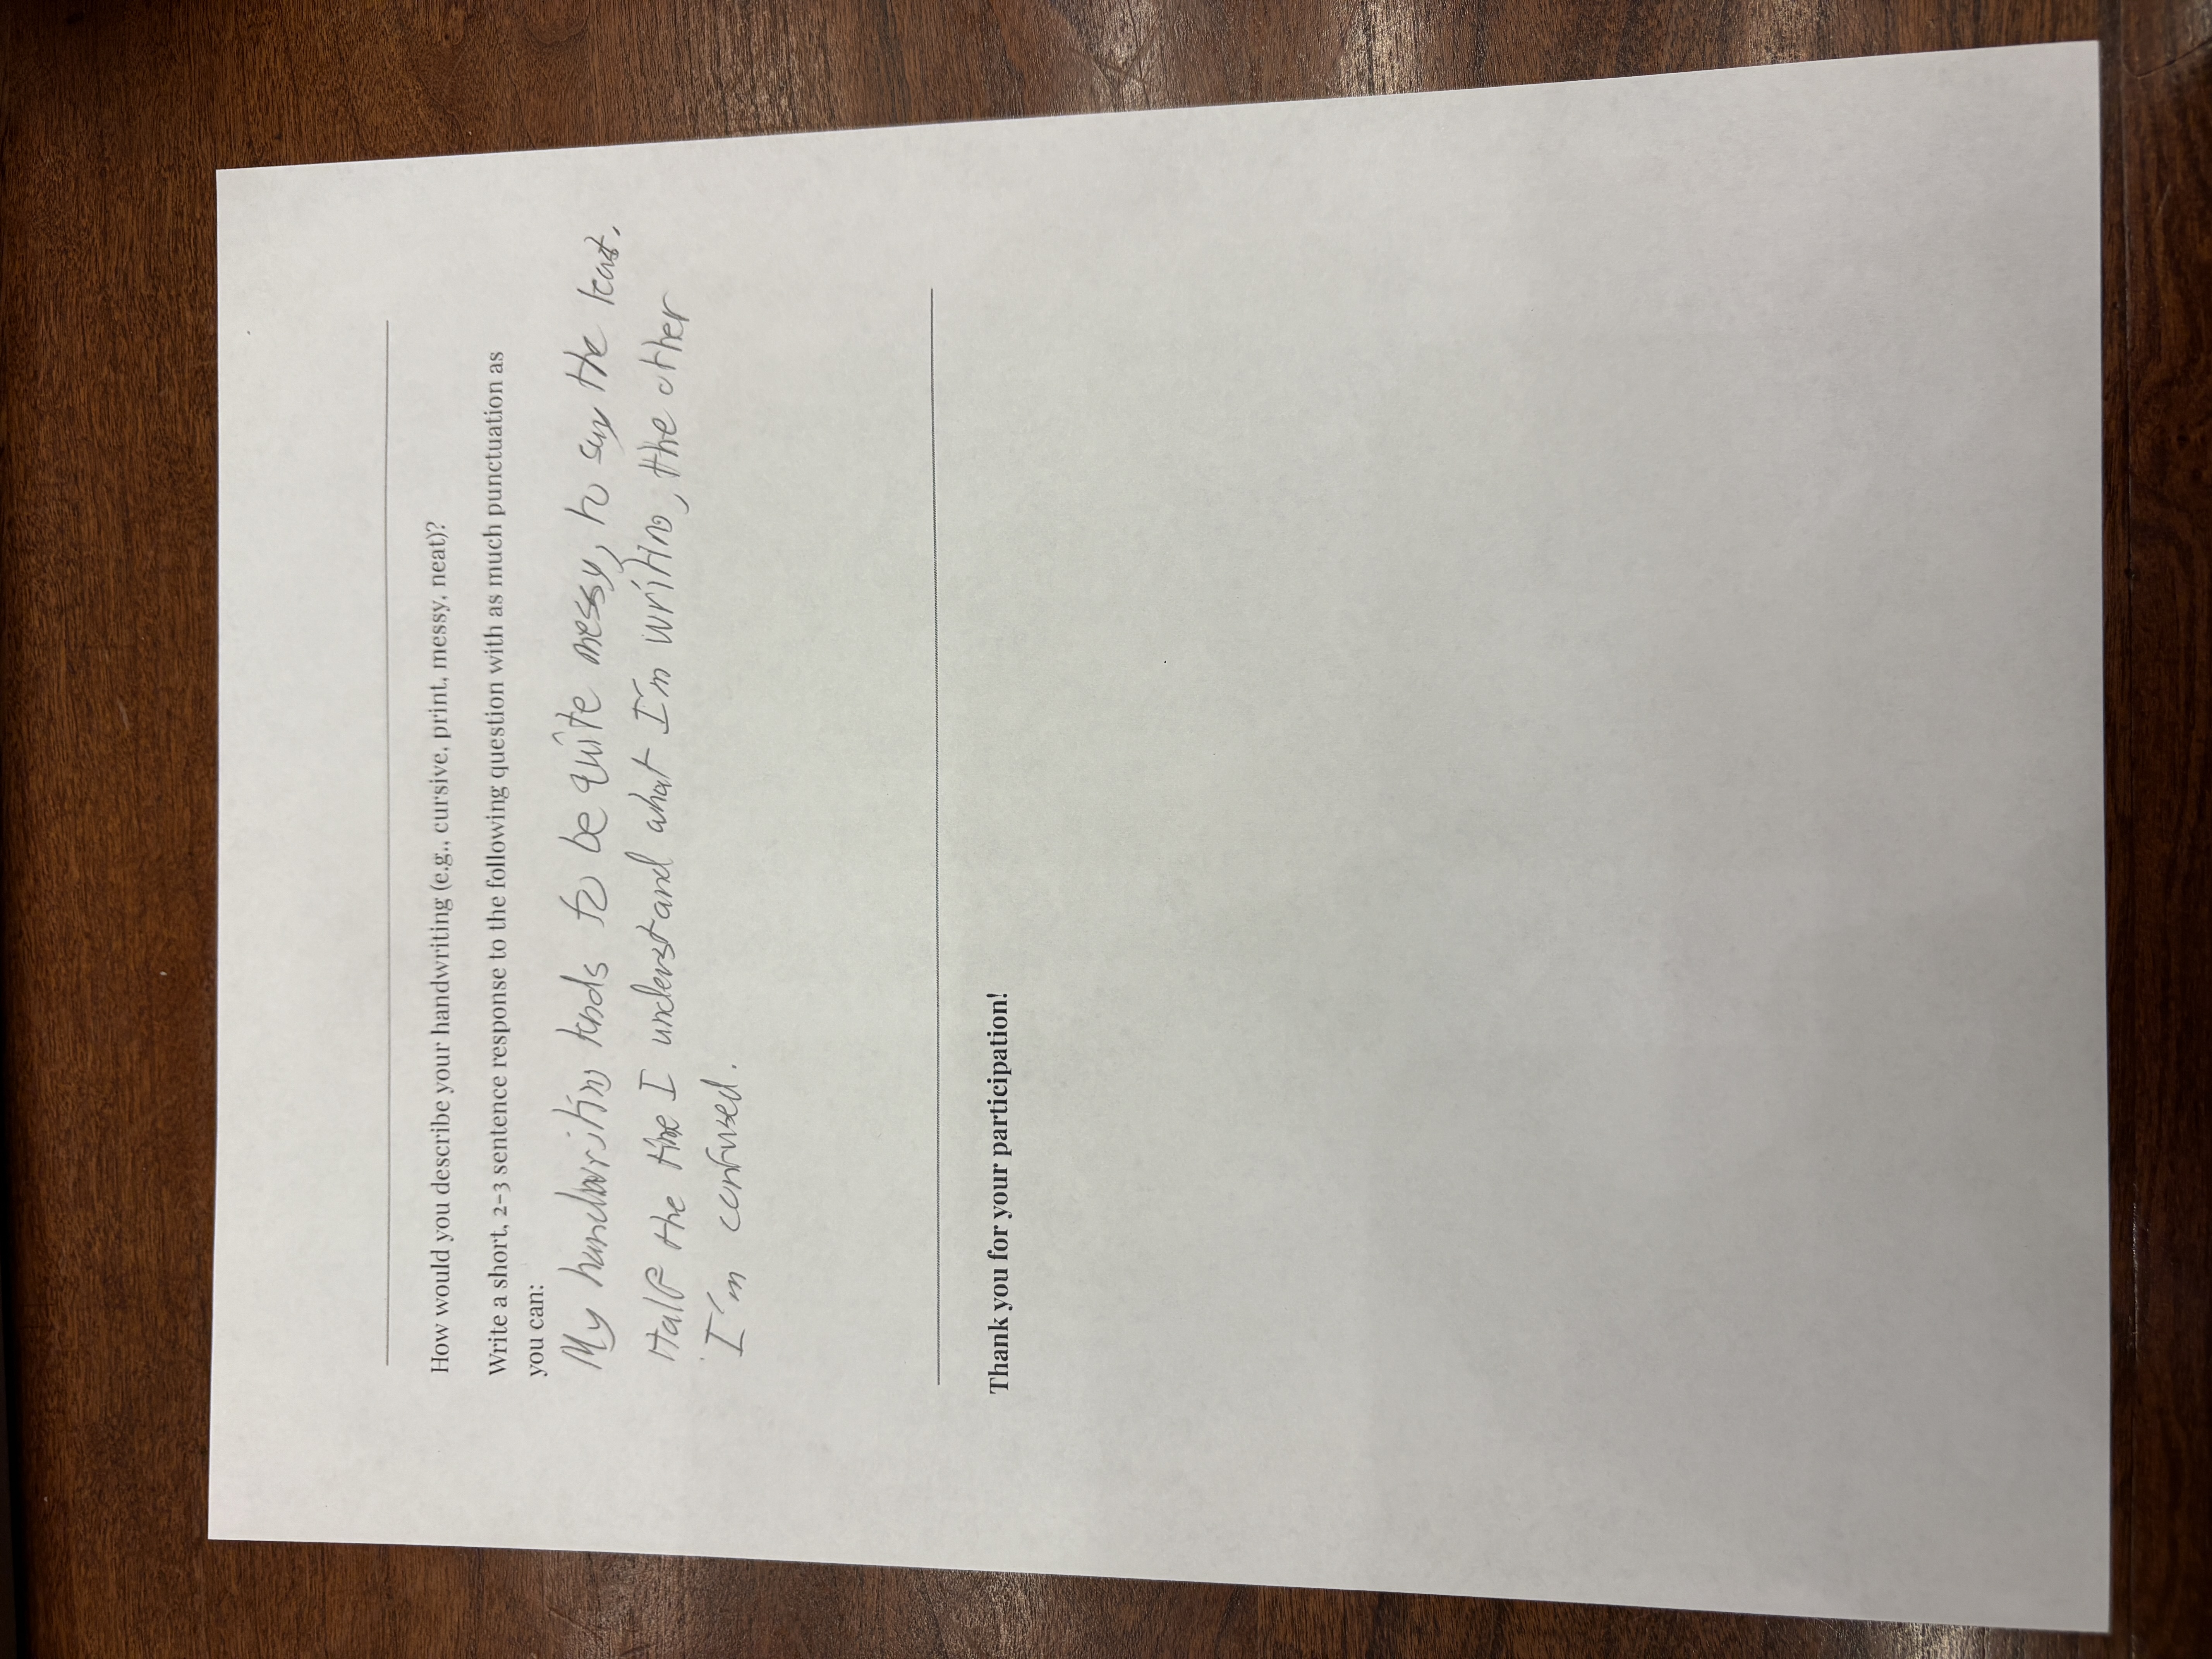 How would you describe your handwriting (e.g., cursive, print, messy, neat)?
Write a short, 2-3 sentence response to the following question with as much punctuation as
you can:
My handwriting tends to be quite messy, to say the least.
Half the time I understand what I'm writing, the other
I'm confused.
Thank you for your participation!